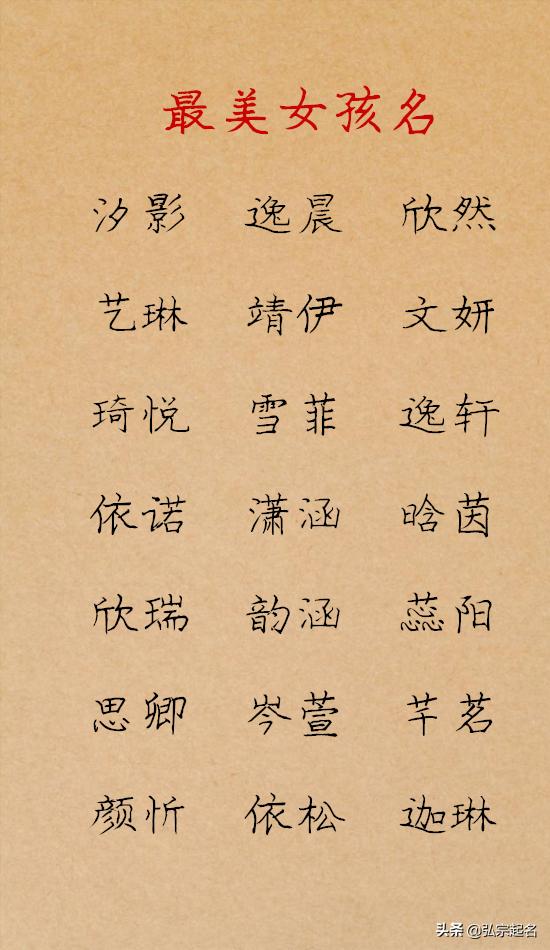 最美女孩名
汐影 逸晨 欣然
艺琳 靖伊 文妍
琦悦 雪菲 逸轩
依诺 潇涵 晗茵
欣瑞 韵涵 蕊阳
思卿 岑萱 芊茗
颜忻 依松 迦琳
头条 @弘宗起名